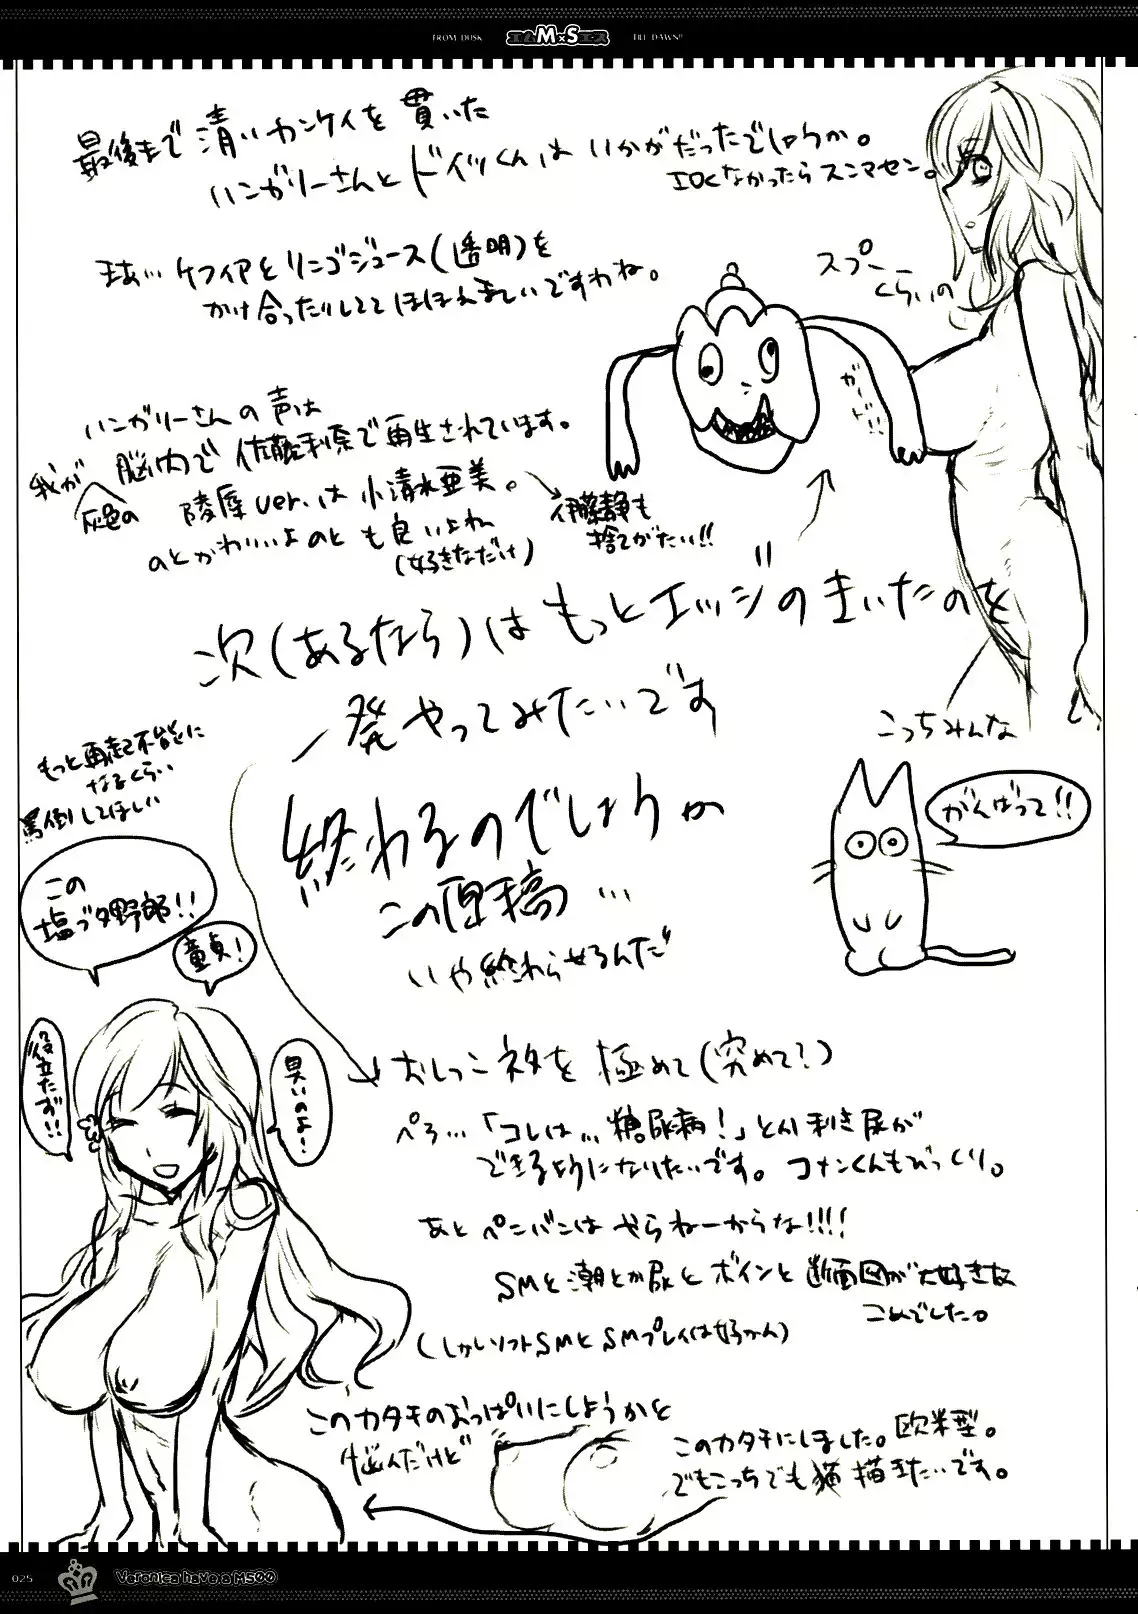 FROM DUSK エムM×Sエス TILL DAWN!!
最後まで清いカンケイを貫いた
ハンガリーさんとドイツくんは いかがだったでしょうか。
エロくなかったらスンマセン。
まあ… ケフィアとリンゴジュース(透明)を
かけ合ったりしてて ほほえましいですわね。
スプーー
くらいの
ハンガリーさんの声は
我が 脳内で 佐藤利奈で再生されています。
灰色の
陵辱ver.は 小清水亜美。
のとかわいいよのとも良いよね
(好きなだけ)
伊藤静も
捨てがたい!!
次(あるなら)は もっとエッジのきいたのを
一発やってみたいです
こっちみんな
がんばって!!
もっと再起不能に
なるくらい
罵倒してほしい
この
塩ブタ野郎!!
童貞!
役立たず!!
臭いのよ!
終わるのでしょうか
この原稿…
いや終わらせるんだ
おしっこネタを 極めて(究めて?)
ぺろ…「コレは… 糖尿病!」とか利き尿が
できるようになりたいです。コナンくんもびっくり。
あと ペニバンは やらねーからな!!!!
SMと潮とか尿とボインと断面図が大好きな
こめでした。
(しかしソフトSMとSMプレイは好かん)
このカタチのおっぱいにしようかと
悩んだけど
このカタチにしました。欧米型。
でもこっちでも猫描きたいです。
025 Veronica have a M500